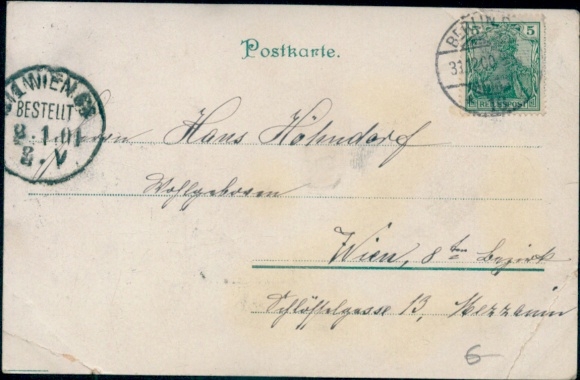 Postkarte.
BERLIN
31.12.00
5
REICHSPOST
WIEN
BESTELLT
2.1.01
2.V
Herrn Hans Höhndorf
Wohlgeboren
Wien, 8ten Bezirk
Schlösselgasse 13, Mezzanin
6